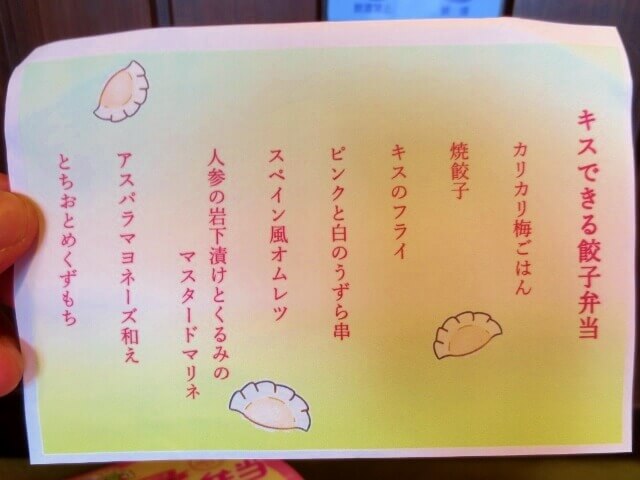 キスできる餃子弁当
カリカリ梅ごはん
焼餃子
キスのフライ
ピンクと白のうずら串
スペイン風オムレツ
人参の岩下漬けとくるみの
マスタードマリネ
アスパラマヨネーズ和え
とちおとめくずもち
弁当